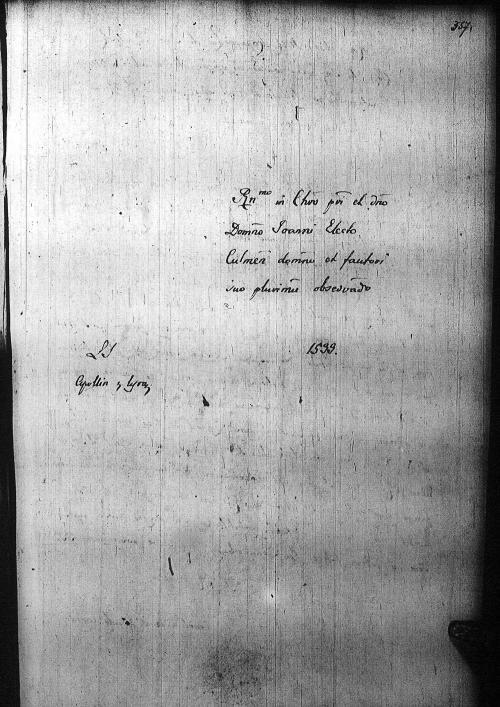 357.
Rnmo in Chro pri et dno
Domno Ioanni Electo
Culmen domno et fautori
suo plurimu observado
LS
1533.
Apollin z lyra